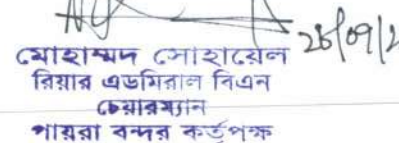 28/09/2
মোহাম্মদ সোহায়েল
রিয়ার এডমিরাল বিএন
চেয়ারম্যান
পায়রা বন্দর কর্তৃপক্ষ